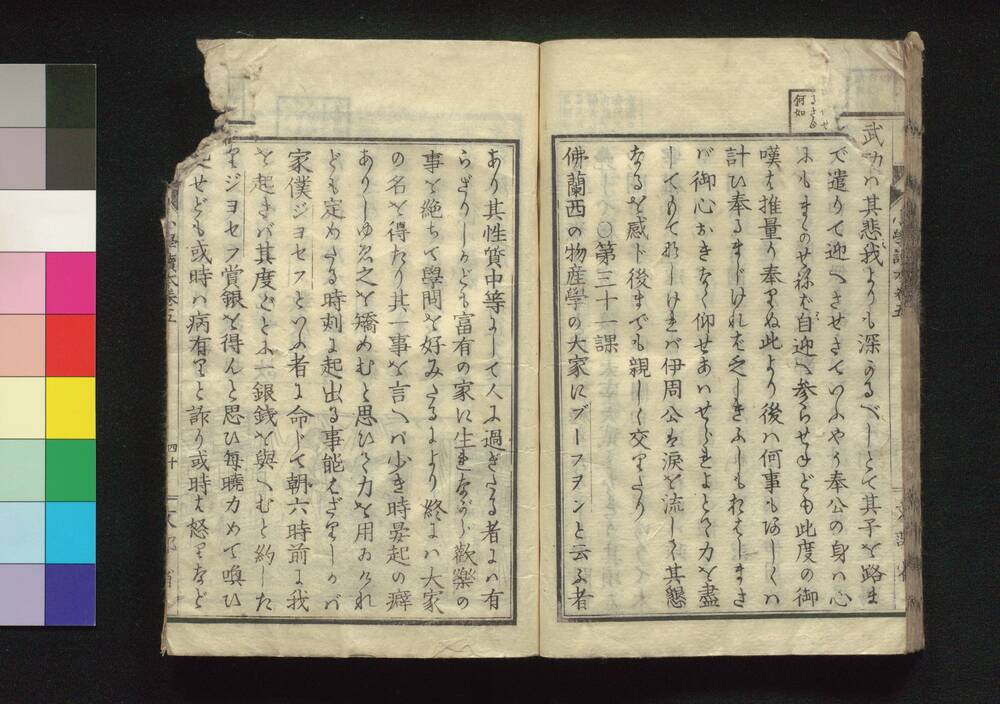 何如
武功ハ其悲我よりも深かるべしとて其子を路ま
で遣りて迎へさせていふやう奉公の身ハ心
にもまかせねば自迎へ参らせねども此度の御
嘆は推量り奉りぬ此より後ハ何事も
計ひ奉るまじけれは乏しきふしもおはしまさ
バ御心おきなく仰せあハせられよとて力を盡
してものしけれバ伊周公は涙を流して其懇
なるを感ト後までも親しく交りたり
〇第三十一課
佛蘭西の物産学の大家にブーフヲンと云ふ者
あり其性質中等にして人に過ぎたる者にハ有
らざりしかども富有の家に生れながら歡樂の
事を絶ちて學問を好みたるより終にハ大家
の名を得たり其一事を言へバ少き時晏起の癖
ありしゆゑ之を矯めむと思ひて力を用ゐけれ
ども定めたる時刻に起出る事能はざりしかバ
家僕ジヨセフといふ者に命じて朝六時前に我
を起さバ其度ごとに一銀銭を與へむと約した
りジヨセフ賞銀を得んと思ひ毎曉力めて喚ひ
せども或時ハ病有りと詐り或時は怒りなど
小學讀本卷五
四十
文部省